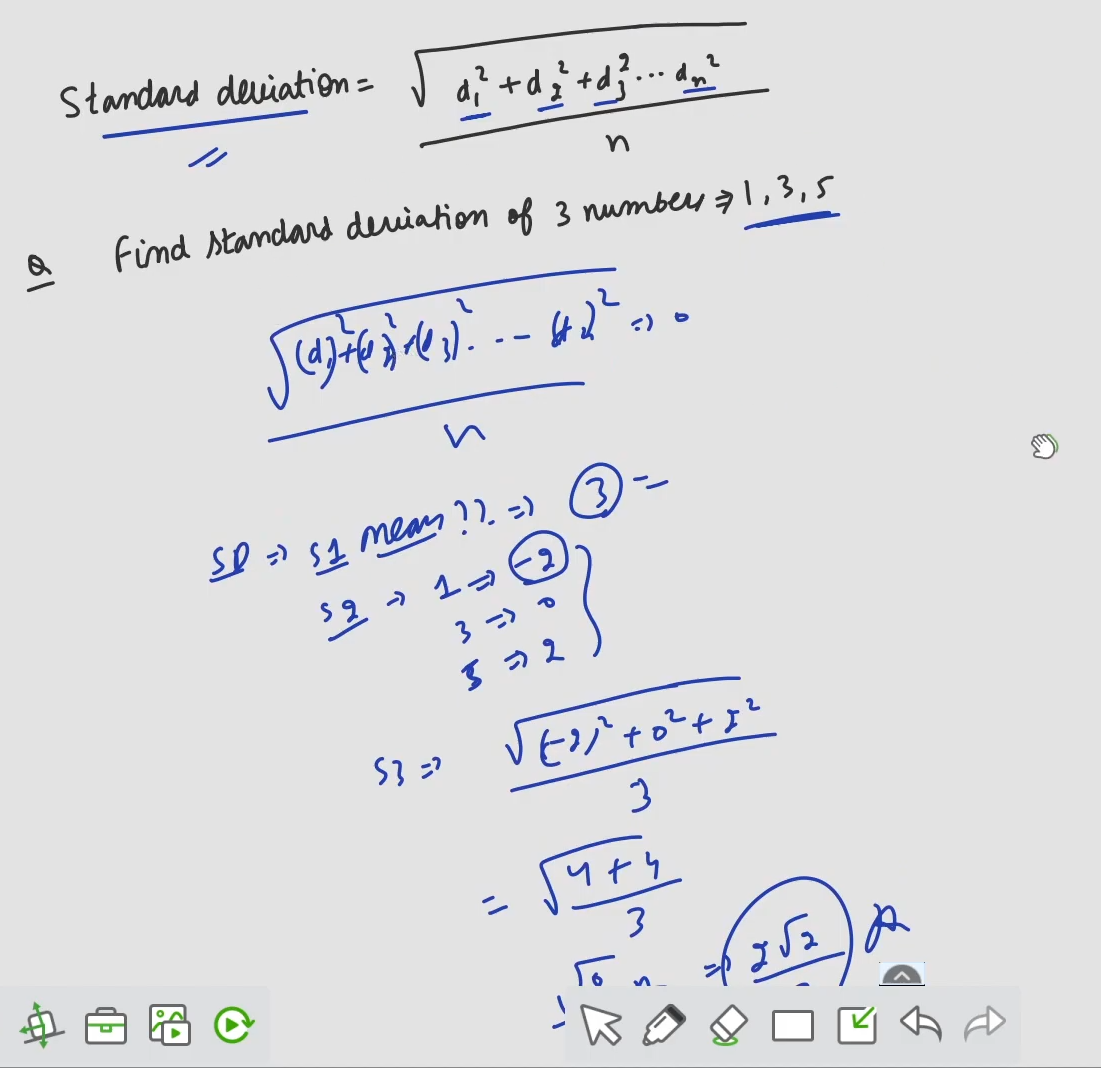 Standard deviation = √ d₁² + d₂² + d₃² ... dₙ²
n
Q Find standard deviation of 3 numbers ⇒ 1, 3, 5
√ (d₁)² + (d₂)² + (d₃)² . . - - ² => 0
n
SD => S1 mean ??. => 3 =
S2 → 1 => -2
3 => 0
5 => 2
S3 => √ (-2)² + 0² + 2²
3
= √ 4 + 4
3
=> 2√2